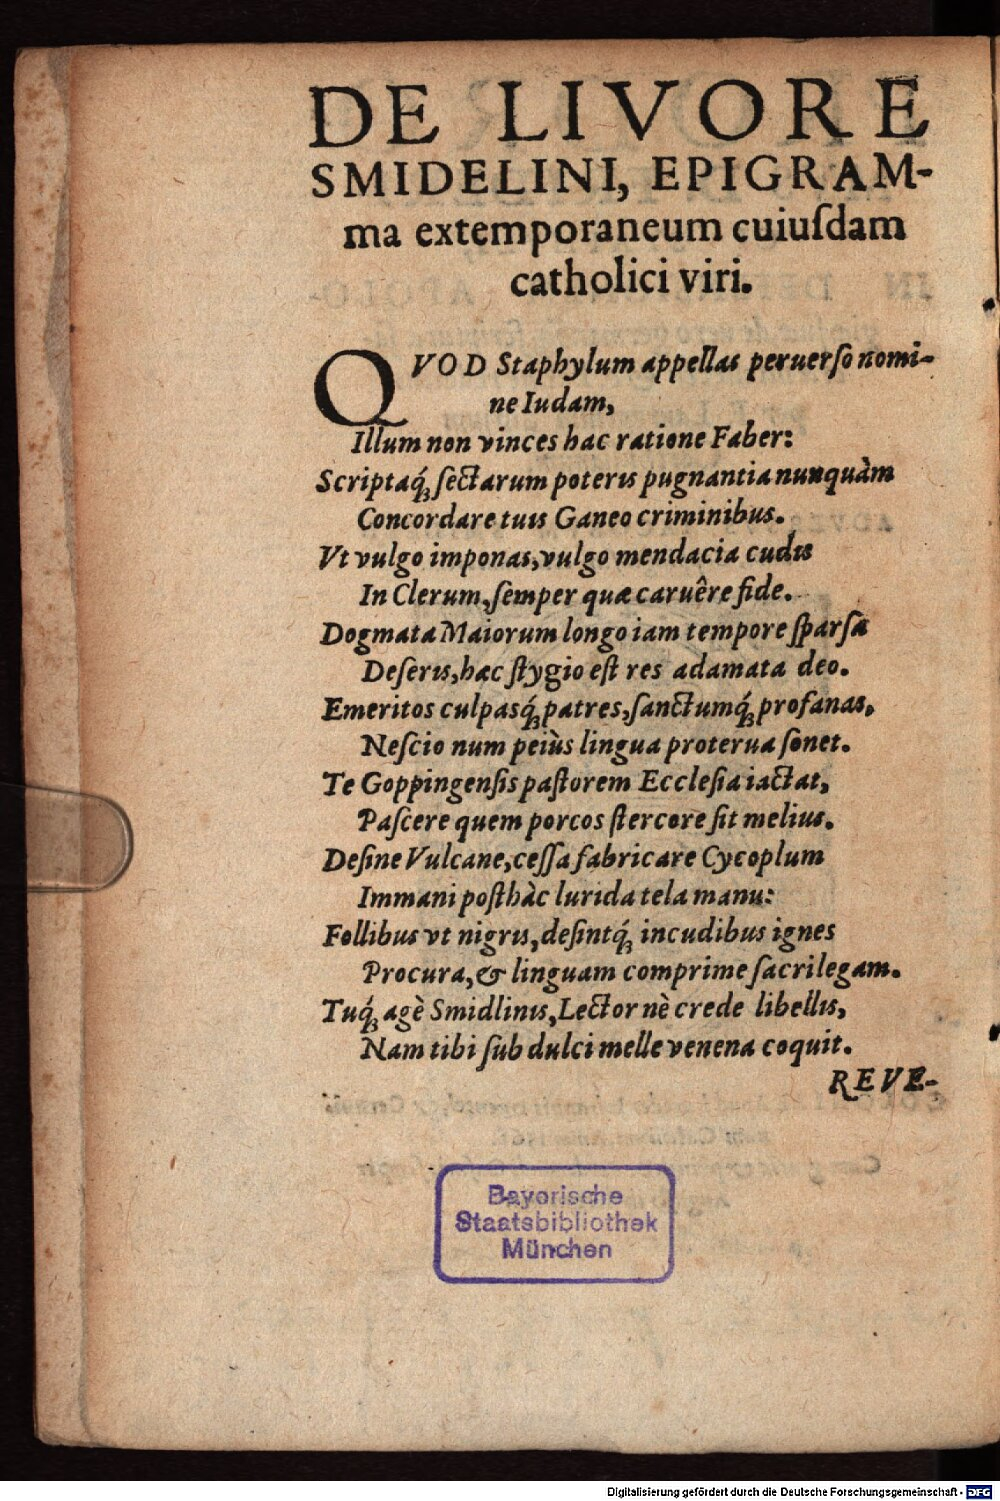 DE LIVORE
SMIDELINI, EPIGRAM-
ma extemporaneum cuiuſdam
catholici viri.
QVOD Staphylum appellas peruerſo nomi-
ne Iudam,
Illum non vinces hac ratione Faber:
Scriptaq́; ſectarum poteris pugnantia nunquàm
Concordare tuis Ganeo criminibus.
Vt vulgo imponas, vulgo mendacia cudis
In Clerum, ſemper quæ caruêre fide.
Dogmata Maiorum longo iam tempore ſparſa
Deſeris, hæc ſtygio eſt res adamata deo.
Emeritos culpasq́; patres, ſanctumq́; profanas,
Neſcio num peiùs lingua proterua ſonet.
Te Goppingenſis paſtorem Eccleſia iactat,
Paſcere quem porcos ſtercore ſit melius.
Deſine Vulcane, ceſſa fabricare Cycoplum
Immani poſthàc lurida tela manu:
Follibus vt nigris, deſintq́; incudibus ignes
Procura, & linguam comprime ſacrilegam.
Tuq́; agè Smidlinis, Lector nè crede libellis,
Nam tibi ſub dulci melle venena coquit.
REVE-
Bayerische
Staatsbibliothek
München
Digitalisierung gefördert durch die Deutsche Forschungsgemeinschaft - DFG